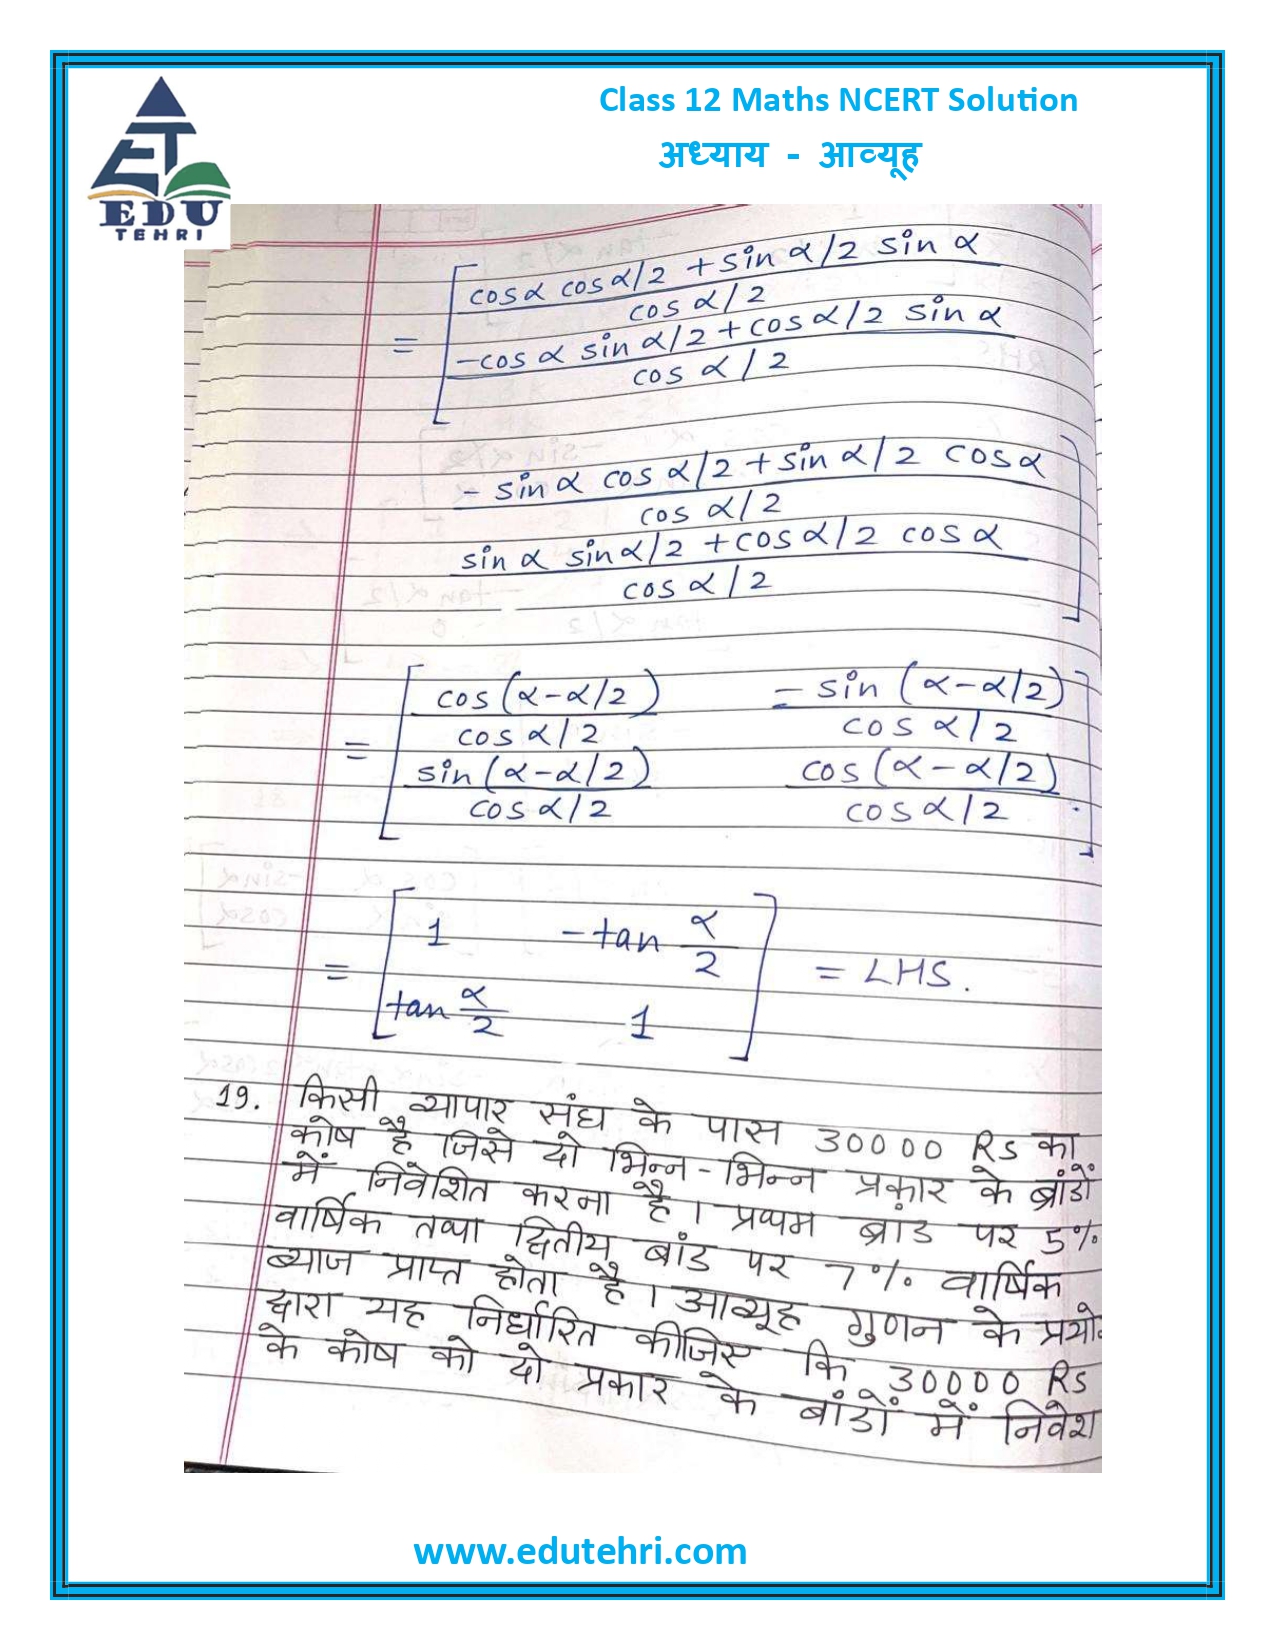 Class 12 Maths NCERT Solution
अध्याय - आव्यूह
EDU
TEHRI
cosα cosα/2 + sinα/2 sinα
cosα/2
=
-cosα sinα/2 + cosα/2 sinα
cosα/2
- sinα cosα/2 + sinα/2 cosα
cosα/2
sinα sinα/2 + cosα/2 cosα
cosα/2
cos(α-α/2) - sin(α-α/2)
cosα/2 cosα/2
=
sin(α-α/2) cos(α-α/2)
cosα/2 cosα/2
1 -tan α/2
= = LHS.
tan α/2 1
19. किसी व्यापार संघ के पास 30000 Rs का
कोष है जिसे दो भिन्न-भिन्न प्रकार के ब्रांडों
में निवेशित करना है। प्रथम ब्रांड पर 5%
वार्षिक तथा द्वितीय बांड पर 7% वार्षिक
ब्याज प्राप्त होता है। आव्यूह गुणन के
द्वारा यह निर्धारित कीजिए कि 30000 Rs
के कोष को दो प्रकार के बांडों में निवेश
www.edutehri.com